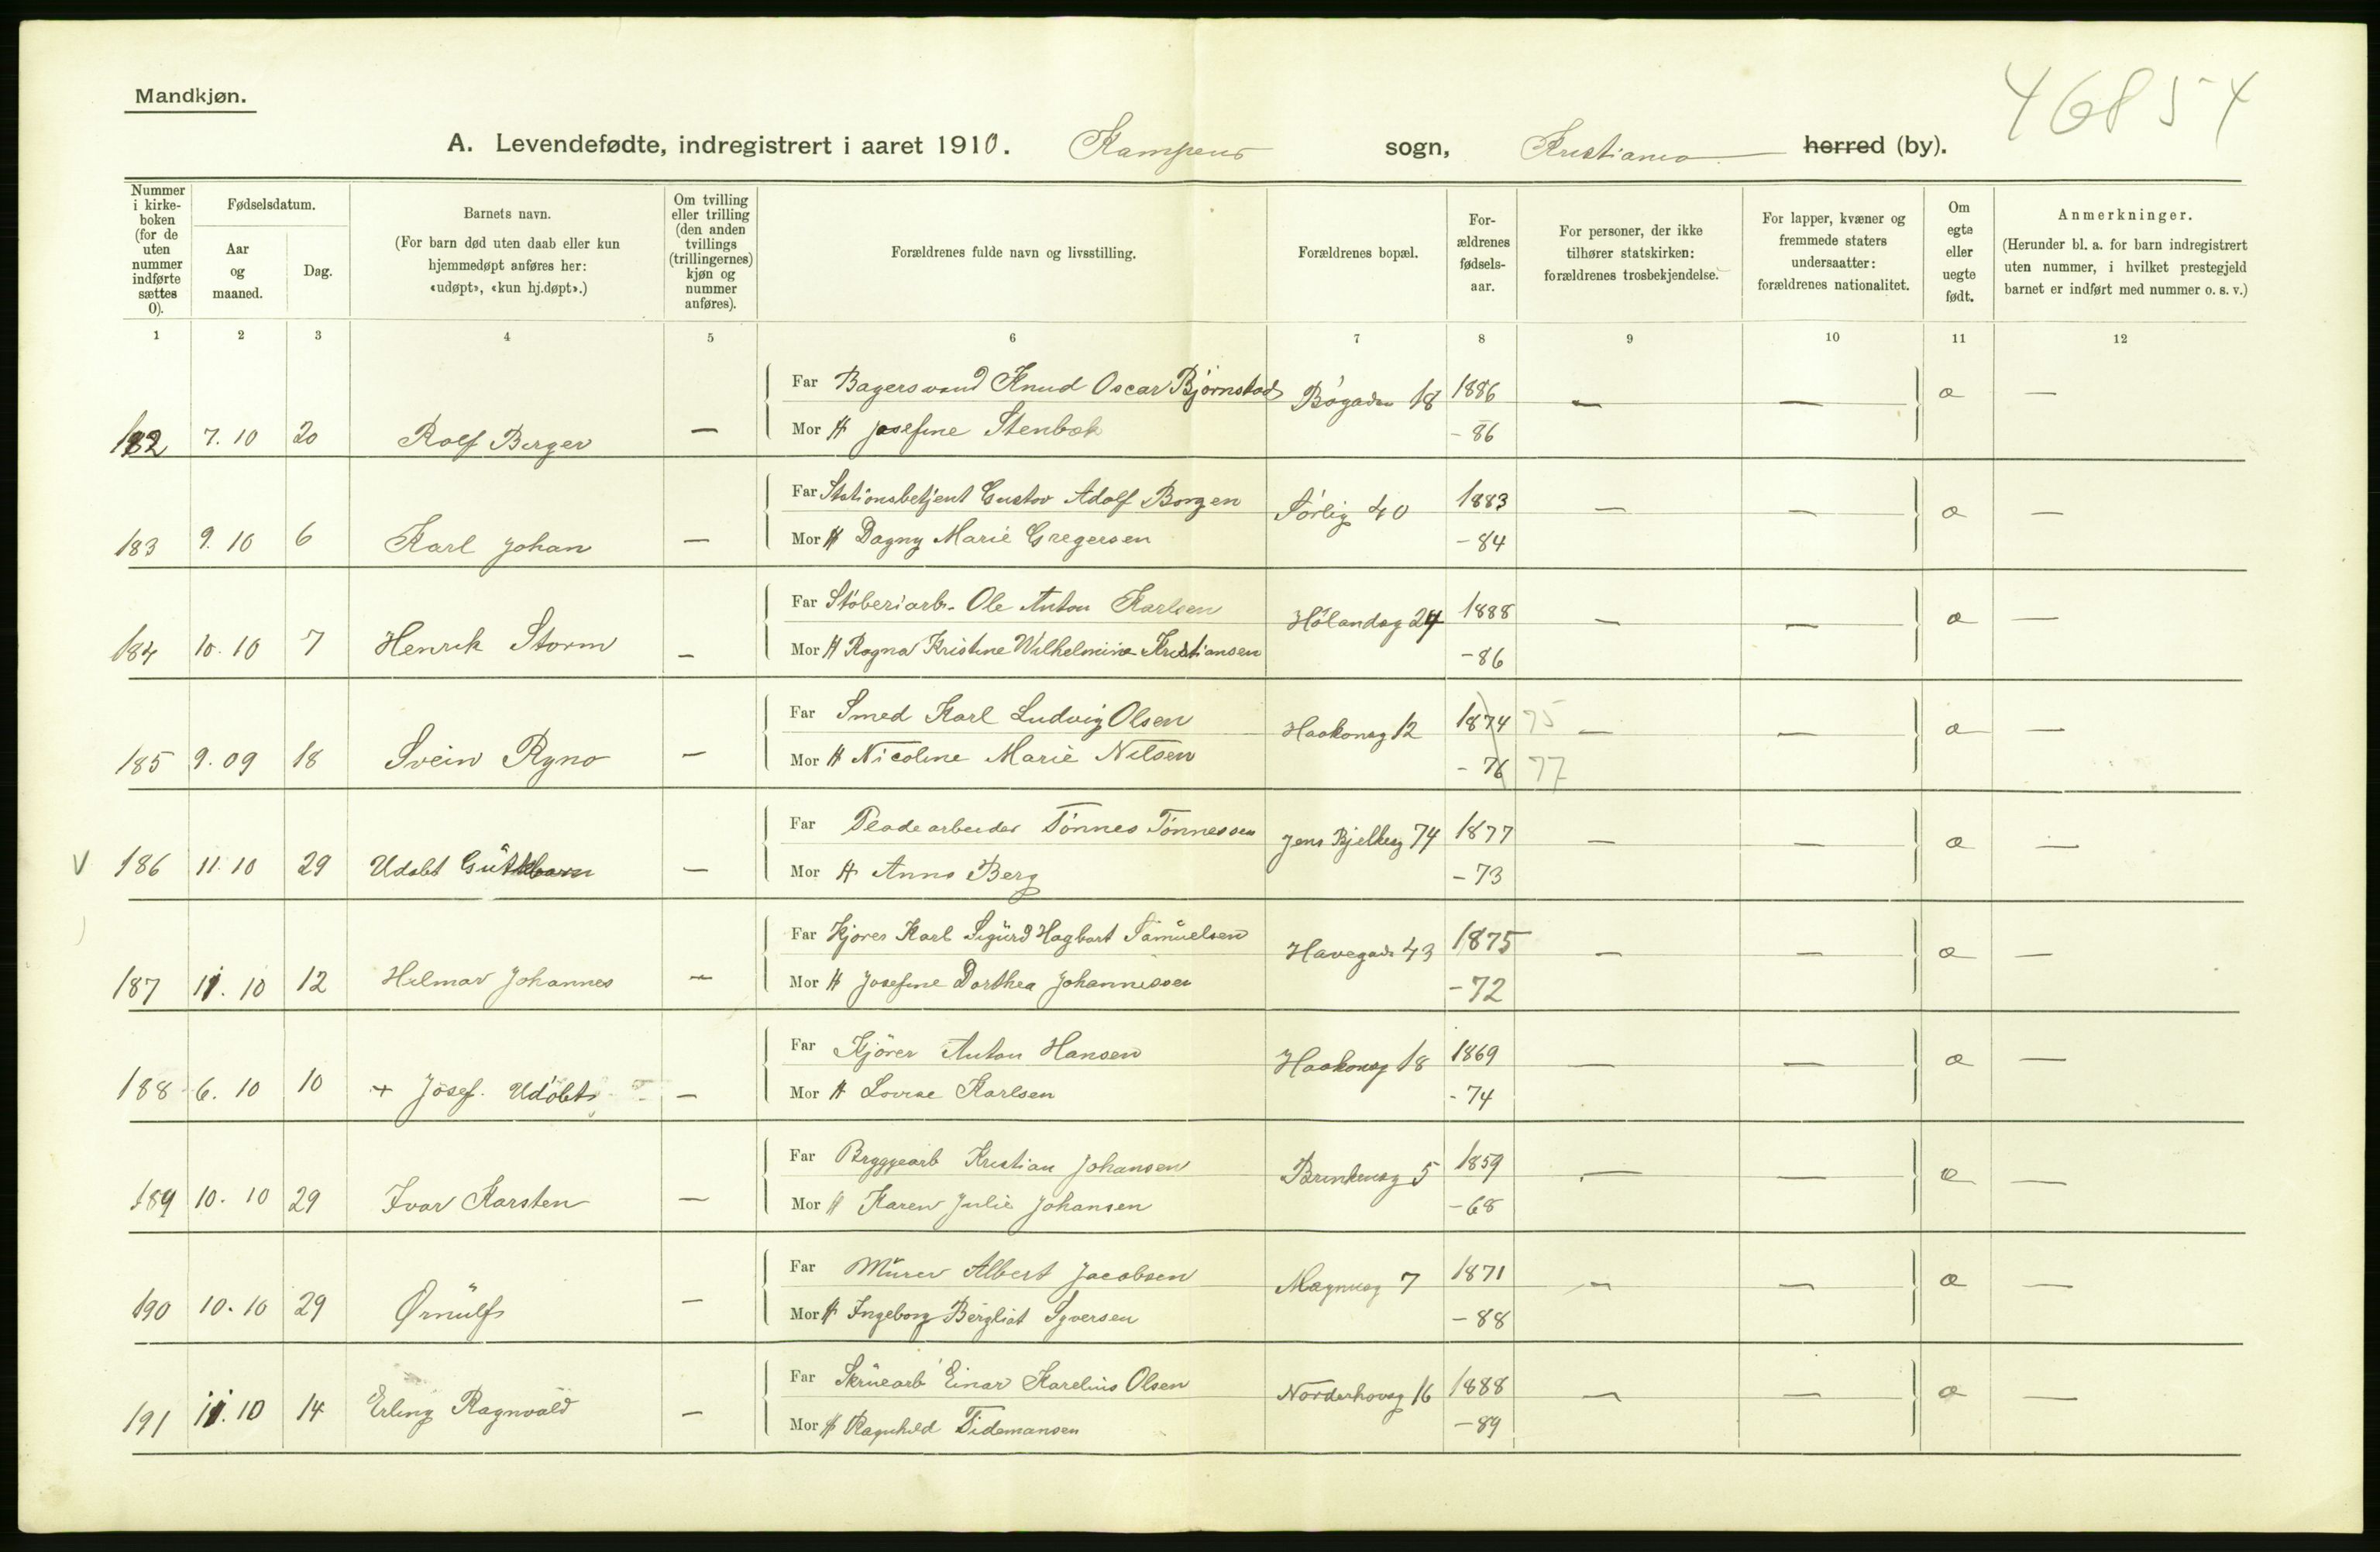 Mandkjøn.
46854
A. Levendefødte, indregistrert i aaret 1910. Kampens sogn, Kristiania herred (by).
Nummer i kirke-boken (for de uten nummer indførte sættes 0).
Fødselsdatum.
Aar og maaned.
Dag.
Barnets navn.
(For barn død uten daab eller kun hjemmedøpt anføres her: «udøpt», «kun hj.døpt».)
Om tvilling eller trilling (den anden tvillings (trillingernes) kjøn og nummer anføres).
Forældrenes fulde navn og livsstilling.
Forældrenes bopæl.
For-ældrenes fødsels-aar.
For personer, der ikke tilhører statskirken: forældrenes trosbekjendelse.
For lapper, kvæner og fremmede staters undersaatter: forældrenes nationalitet.
Om egte eller uegte født.
Anmerkninger.
(Herunder bl. a. for barn indregistrert uten nummer, i hvilket prestegjeld barnet er indført med nummer o. s. v.)
1 2 3 4 5 6 7 8 9 10 11 12
Far Bagersvend Knud Oscar Bjørnstad Bøgaden 18 1886 — — æ —
182 7.10 20 Rolf Birger — Mor H Josefine Stenbæk - 86
Far Stationsbetjent Gustav Adolf Borgen Sørlig 40 1883 — — æ —
183 9.10 6 Karl Johan — Mor H Dagny Marie Gregersen - 84
Far Støberiarb. Ole Anton Karlsen Hølandsg 24 1888 — — æ —
184 10.10 7 Henrik Storm — Mor H Ragna Kristine Wilhelmine Kristiansen - 86
Far Smed Karl Ludvig Olsen Haakonsg 12 1874 75 — — æ —
185 9.09 18 Svein Ryno — Mor H Nicoline Marie Nilsen - 76 77
Far Tønnes Tønnessen Jens Bjelkesg 74 1877 — — æ —
V 186 11.10 29 Udøbt Guttebarn — Mor H Anna Berg - 73
Far Kjører Karl Sigurd Hagbart Samuelsen Havegade 43 1875 — — æ —
187 11.10 12 Hilmar Johannes — Mor H Josefine Dorthea Johannessen - 72
Far Kjører Anton Hansen Haakonsg 18 1869 — — æ —
188 6.10 10 + Josef. Udøbt — Mor H Lovise Karlsen - 74
Far Bryggearb Kristian Johansen Brinkensg 5 1859 — — æ —
189 10.10 29 Ivar Karsten — Mor H Karen Julie Johansen - 68
Far Murer Albert Jacobsen Magnusg 7 1871 — — æ —
190 10.10 29 Ørnulf — Mor H Ingeborg Bergliot Syversen - 88
Far Skruearb Einar Karelius Olsen Norderhovsg 16 1888 — — æ —
191 11.10 14 Erling Ragnvald — Mor H Ragnhild Tidemansen - 89